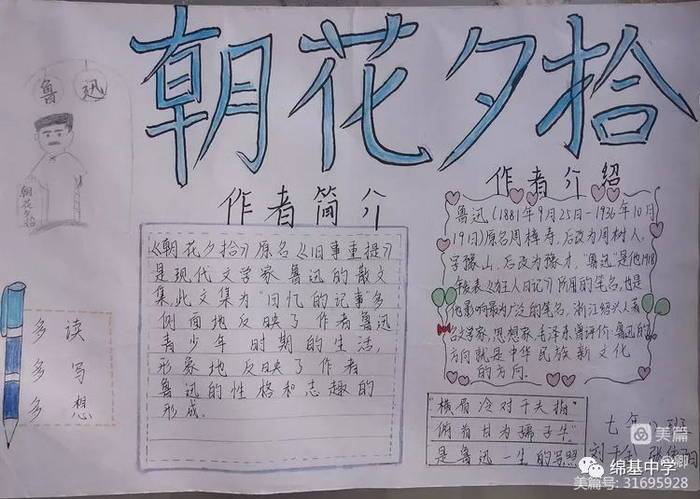 朝花夕拾
鲁迅
朝花夕拾
作者简介
《朝花夕拾》原名《旧事重提》
是现代文学家鲁迅的散文
集,此文集为“回忆的记事”多
侧面地反映了作者鲁迅
青少年时期的生活,
形象地反映了作者
鲁迅的性格和志趣的
形成.
多读
多写
多想
作者介绍
鲁迅(1881年9月25日-1936年10月
19日)原名周樟寿,后改为周树人,
字豫山,后改为豫才,“鲁迅”是他1918
发表《狂人日记》所用的笔名,也是
他影响最为广泛的笔名,浙江绍兴人.著
名文学家,思想家,毛泽东曾评价:鲁迅的
方向就是中华民族新文化
的方向.
“横眉冷对千夫指
俯首甘为孺子牛”
是鲁迅一生的写照
七年
班
刘
张
阳
美篇
绵基中学
美篇号: 31695928